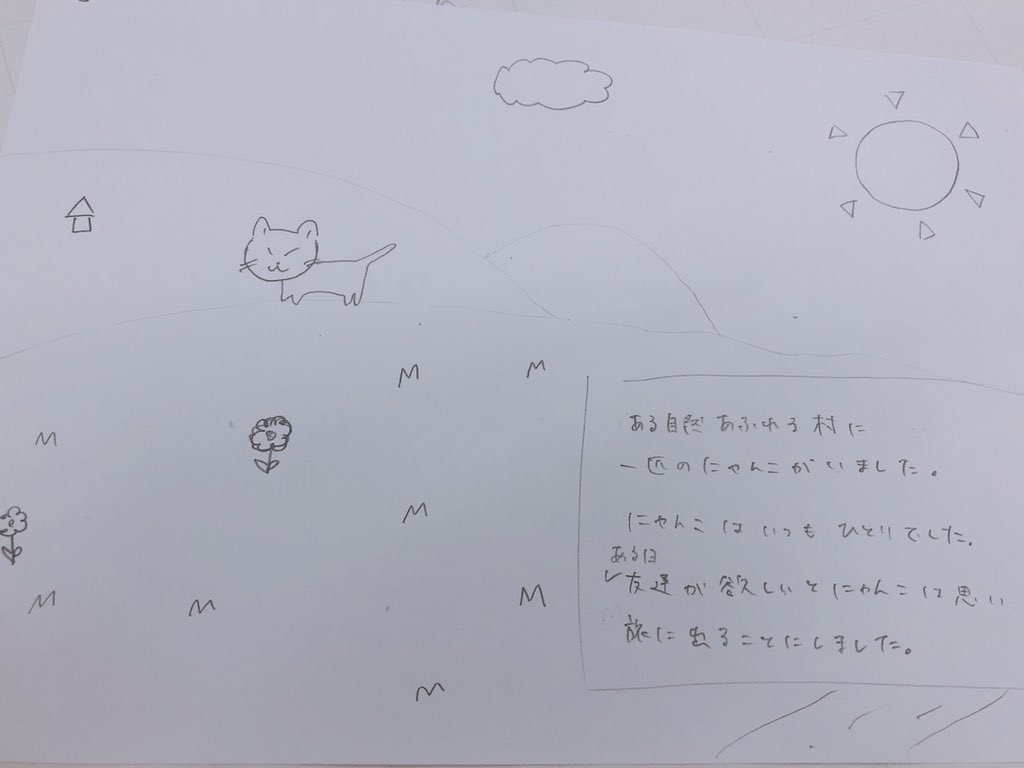 ある自然あふれる村に
一匹のにゃんこがいました。
にゃんこはいつもひとりでした。
ある日
友達が欲しいとにゃんこは思い
旅に出ることにしました。